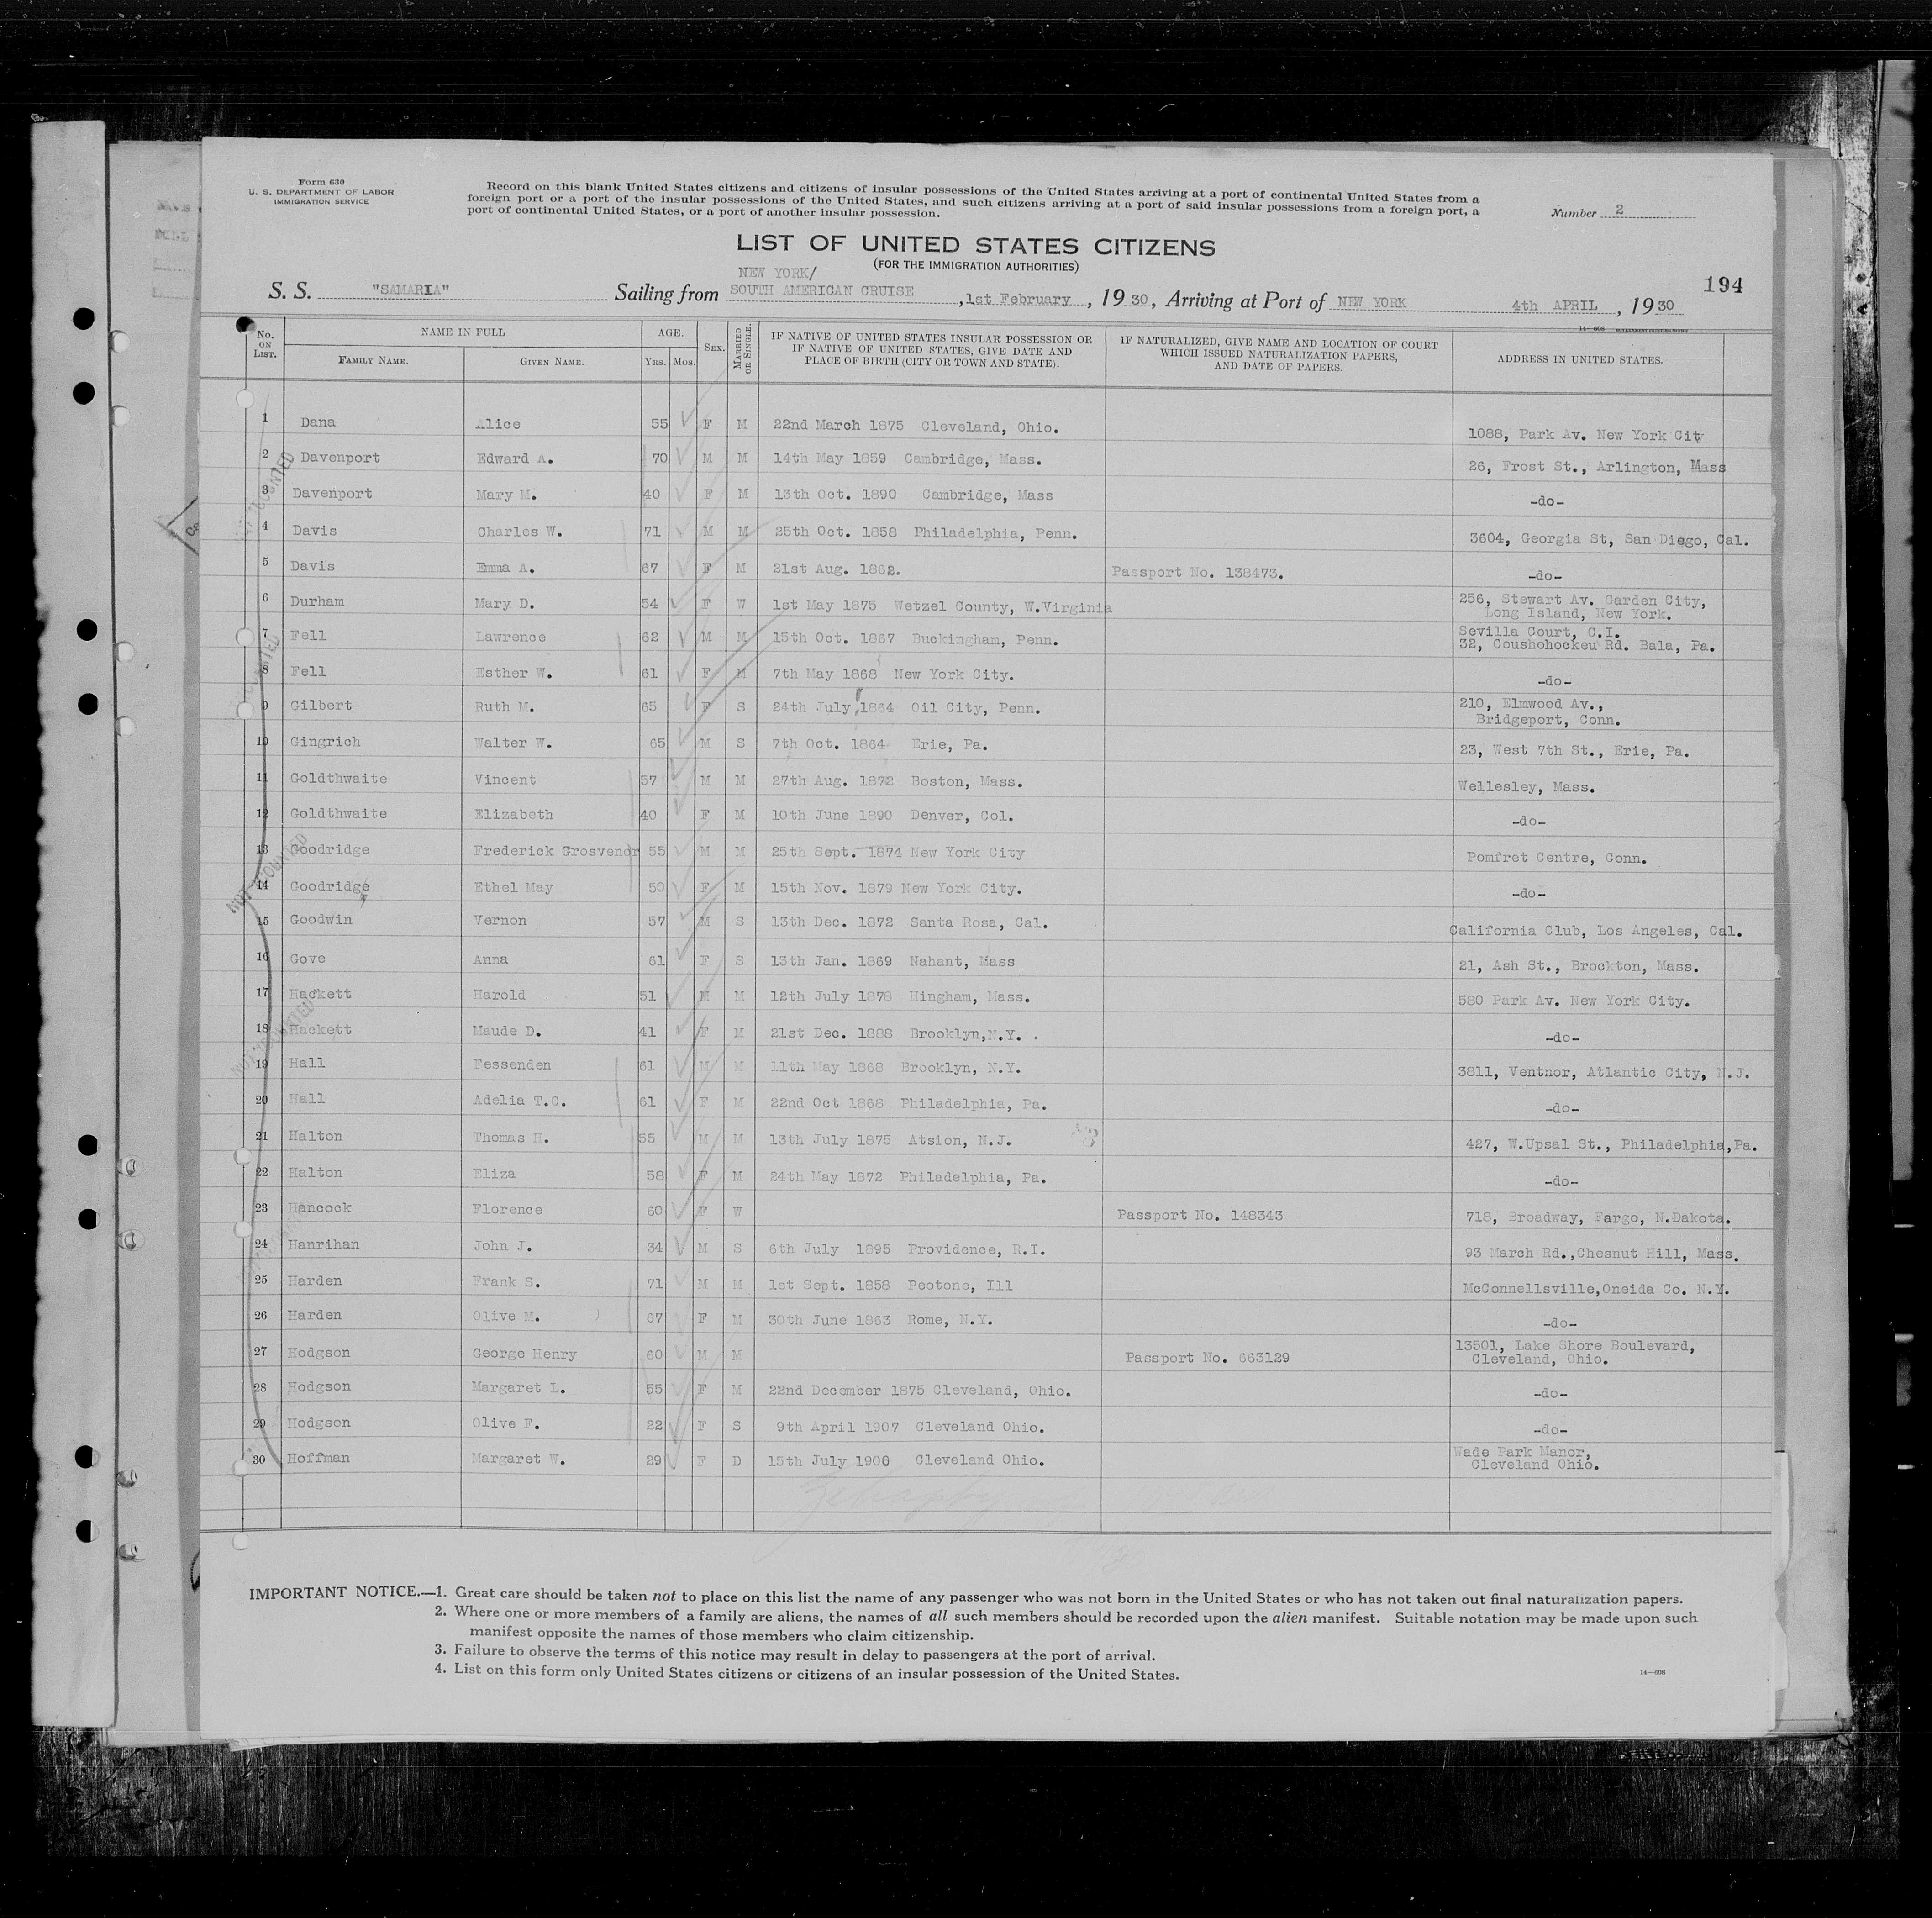 Form 630
U. S. DEPARTMENT OF LABOR
IMMIGRATION SERVICE
Record on this blank United States citizens and citizens of insular possessions of the United States arriving at a port of continental United States from a
foreign port or a port of the insular possessions of the United States, and such citizens arriving at a port of said insular possessions from a foreign port, a
port of continental United States, or a port of another insular possession.
Number 2
LIST OF UNITED STATES CITIZENS
(FOR THE IMMIGRATION AUTHORITIES)
194
NEW YORK/
S. S. "SAMARIA" Sailing from SOUTH AMERICAN CRUISE, 1st February, 19 30, Arriving at Port of NEW YORK 4th APRIL, 19 30
14—608
No. ON LIST. NAME IN FULL FAMILY NAME. GIVEN NAME. AGE. YRS. MOS. SEX. MARRIED OR SINGLE. IF NATIVE OF UNITED STATES INSULAR POSSESSION OR IF NATIVE OF UNITED STATES, GIVE DATE AND PLACE OF BIRTH (CITY OR TOWN AND STATE). IF NATURALIZED, GIVE NAME AND LOCATION OF COURT WHICH ISSUED NATURALIZATION PAPERS, AND DATE OF PAPERS. ADDRESS IN UNITED STATES.
1 Dana Alice 55 F M 22nd March 1875 Cleveland, Ohio. 1088, Park Av. New York City
2 Davenport Edward A. 70 M M 14th May 1859 Cambridge, Mass. 26, Frost St., Arlington, Mass
3 Davenport Mary M. 40 F M 13th Oct. 1890 Cambridge, Mass -do-
4 Davis Charles W. 71 M M 25th Oct. 1858 Philadelphia, Penn. 3604, Georgia St, San Diego, Cal.
5 Davis Emma A. 67 F M 21st Aug. 1862. Passport No. 138473. -do-
6 Durham Mary D. 54 F W 1st May 1875 Wetzel County, W.Virginia 256, Stewart Av. Garden City,
Long Island, New York.
7 Fell Lawrence 62 M M 15th Oct. 1867 Buckingham, Penn. Sevilla Court, C.I.
32, Coushohockeu Rd. Bala, Pa.
8 Fell Esther W. 61 F M 7th May 1868 New York City. -do-
9 Gilbert Ruth M. 65 F S 24th July 1864 Oil City, Penn. 210, Elmwood Av.,
Bridgeport, Conn.
10 Gingrich Walter W. 65 M S 7th Oct. 1864 Erie, Pa. 23, West 7th St., Erie, Pa.
11 Goldthwaite Vincent 57 M M 27th Aug. 1872 Boston, Mass. Wellesley, Mass.
12 Goldthwaite Elizabeth 40 F M 10th June 1890 Denver, Col. -do-
13 Goodridge Frederick Grosvenor 55 M M 25th Sept. 1874 New York City Pomfret Centre, Conn.
14 Goodridge Ethel May 50 F M 15th Nov. 1879 New York City. -do-
15 Goodwin Vernon 57 M S 13th Dec. 1872 Santa Rosa, Cal. California Club, Los Angeles, Cal.
16 Gove Anna 61 F S 13th Jan. 1869 Nahant, Mass 21, Ash St., Brockton, Mass.
17 Hackett Harold 51 M M 12th July 1878 Hingham, Mass. 580 Park Av. New York City.
18 Hackett Maude D. 41 F M 21st Dec. 1888 Brooklyn,N.Y. . -do-
19 Hall Fessenden 61 M M 11th May 1868 Brooklyn, N.Y. 3811, Ventnor, Atlantic City, N.J.
20 Hall Adelia T.C. 61 F M 22nd Oct 1868 Philadelphia, Pa. -do-
21 Halton Thomas H. 55 M M 13th July 1875 Atsion, N.J. 427, W.Upsal St., Philadelphia,Pa.
22 Halton Eliza 58 F M 24th May 1872 Philadelphia, Pa. -do-
23 Hancock Florence 60 F W Passport No. 148343 718, Broadway, Fargo, N.Dakota.
24 Hanrihan John J. 34 M S 6th July 1895 Providence, R.I. 93 March Rd.,Chesnut Hill, Mass.
25 Harden Frank S. 71 M M 1st Sept. 1858 Peotone, Ill McConnellsville,Oneida Co. N.Y.
26 Harden Olive M. ) 67 F M 30th June 1863 Rome, N.Y. -do-
27 Hodgson George Henry 60 M M Passport No. 663129 13501, Lake Shore Boulevard,
Cleveland, Ohio.
28 Hodgson Margaret L. 55 F M 22nd December 1875 Cleveland, Ohio. -do-
29 Hodgson Olive F. 22 F S 9th April 1907 Cleveland Ohio. -do-
30 Hoffman Margaret W. 29 F D 15th July 1900 Cleveland Ohio. Wade Park Manor,
Cleveland Ohio.
NOT COUNTED
IMPORTANT NOTICE.—1. Great care should be taken not to place on this list the name of any passenger who was not born in the United States or who has not taken out final naturalization papers.
2. Where one or more members of a family are aliens, the names of all such members should be recorded upon the alien manifest. Suitable notation may be made upon such
manifest opposite the names of those members who claim citizenship.
3. Failure to observe the terms of this notice may result in delay to passengers at the port of arrival.
4. List on this form only United States citizens or citizens of an insular possession of the United States.
14—608